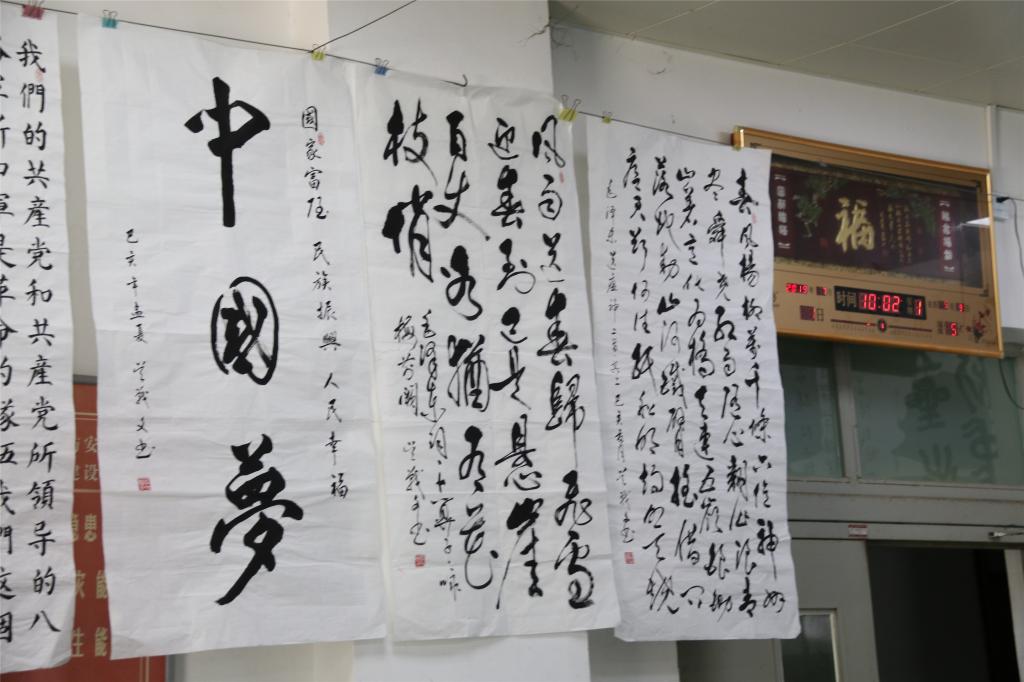 我們的共產党和共產党所領导的八
軍是革命的隊伍我們這個
國家富强 民族振興 人民幸福
中國夢
己亥年孟夏
風雨送春歸飛雪
迎春到已是懸崖
百丈冰猶有花
枝俏
毛澤東詞卜算子咏
梅前闋
春風楊柳萬千條六億神州
盡舜堯紅雨隨心翻作浪青
山着意化为橋天連五嶺銀鋤
落地動山河鐵臂搖借問
瘟君欲何往紙船明燭照天燒
毛澤東送瘟神二首其二己亥
福
2019
时间 10:02